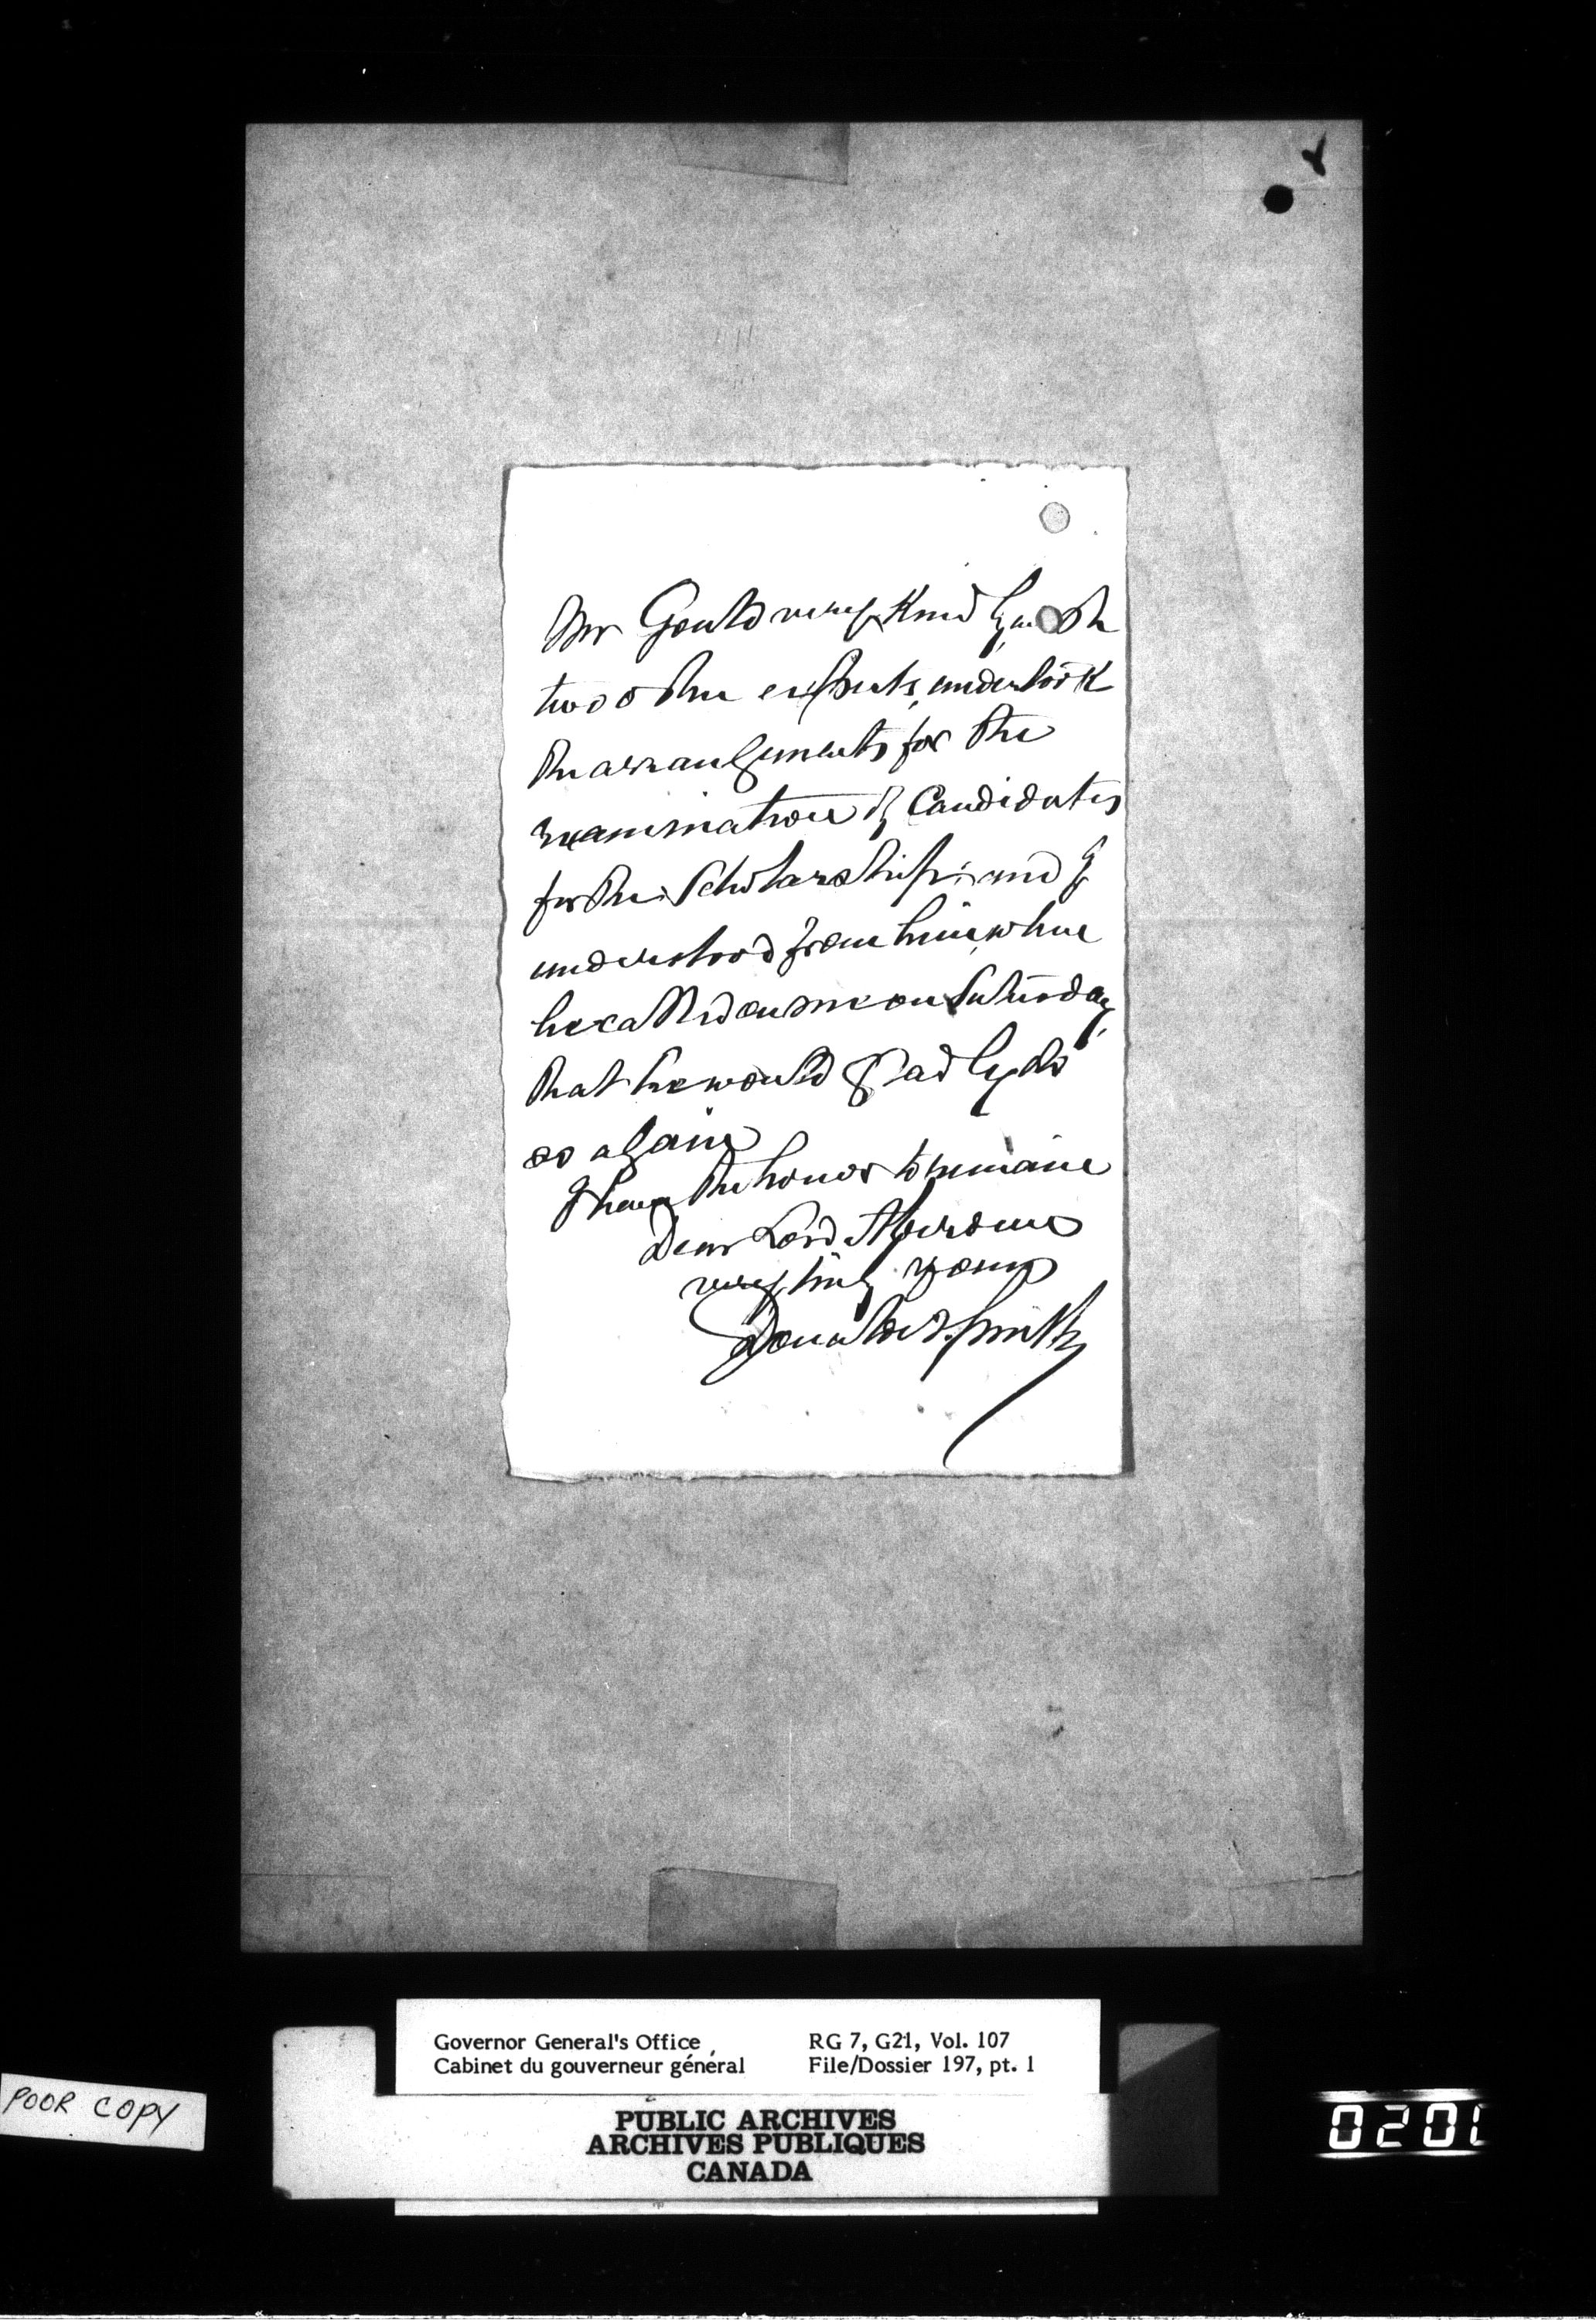 Mr Gould very Kindly, with
two other experts, undertook
the arrangements for the
examination of Candidates
for the Scholarship: and I
understood from him, when
he called on me on Saturday,
that he would gladly do
so again
I have the honor to remain
Dear Lord Aberdeen
very truly yours
Donald A. Smith
Governor General's Office
Cabinet du gouverneur général
RG 7, G21, Vol. 107
File/Dossier 197, pt. 1
POOR COPY
PUBLIC ARCHIVES
ARCHIVES PUBLIQUES
CANADA
0201